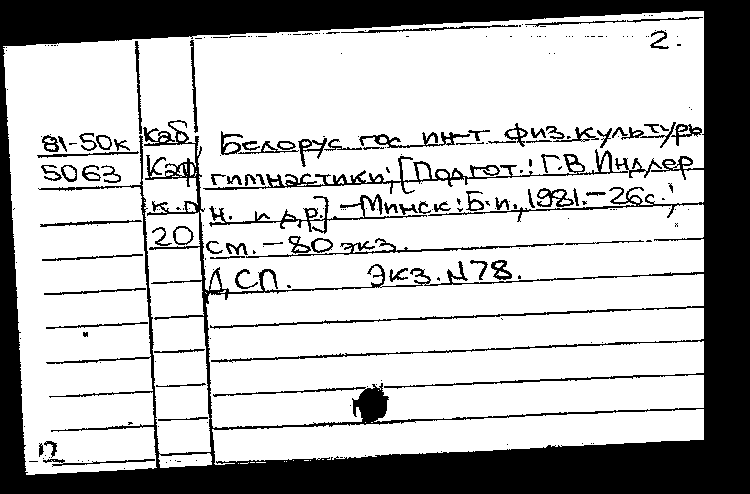 2.
81-50к каб, Белорус гос ин-т физ.культуры
5063 Каф гимнастики; [Подгот.: Г.В. Индлер
к.п н. и др.]. - Минск: Б.и., 1981. - 26с.;
20 см. - 80 экз.
ДСП. Экз. N78.
П